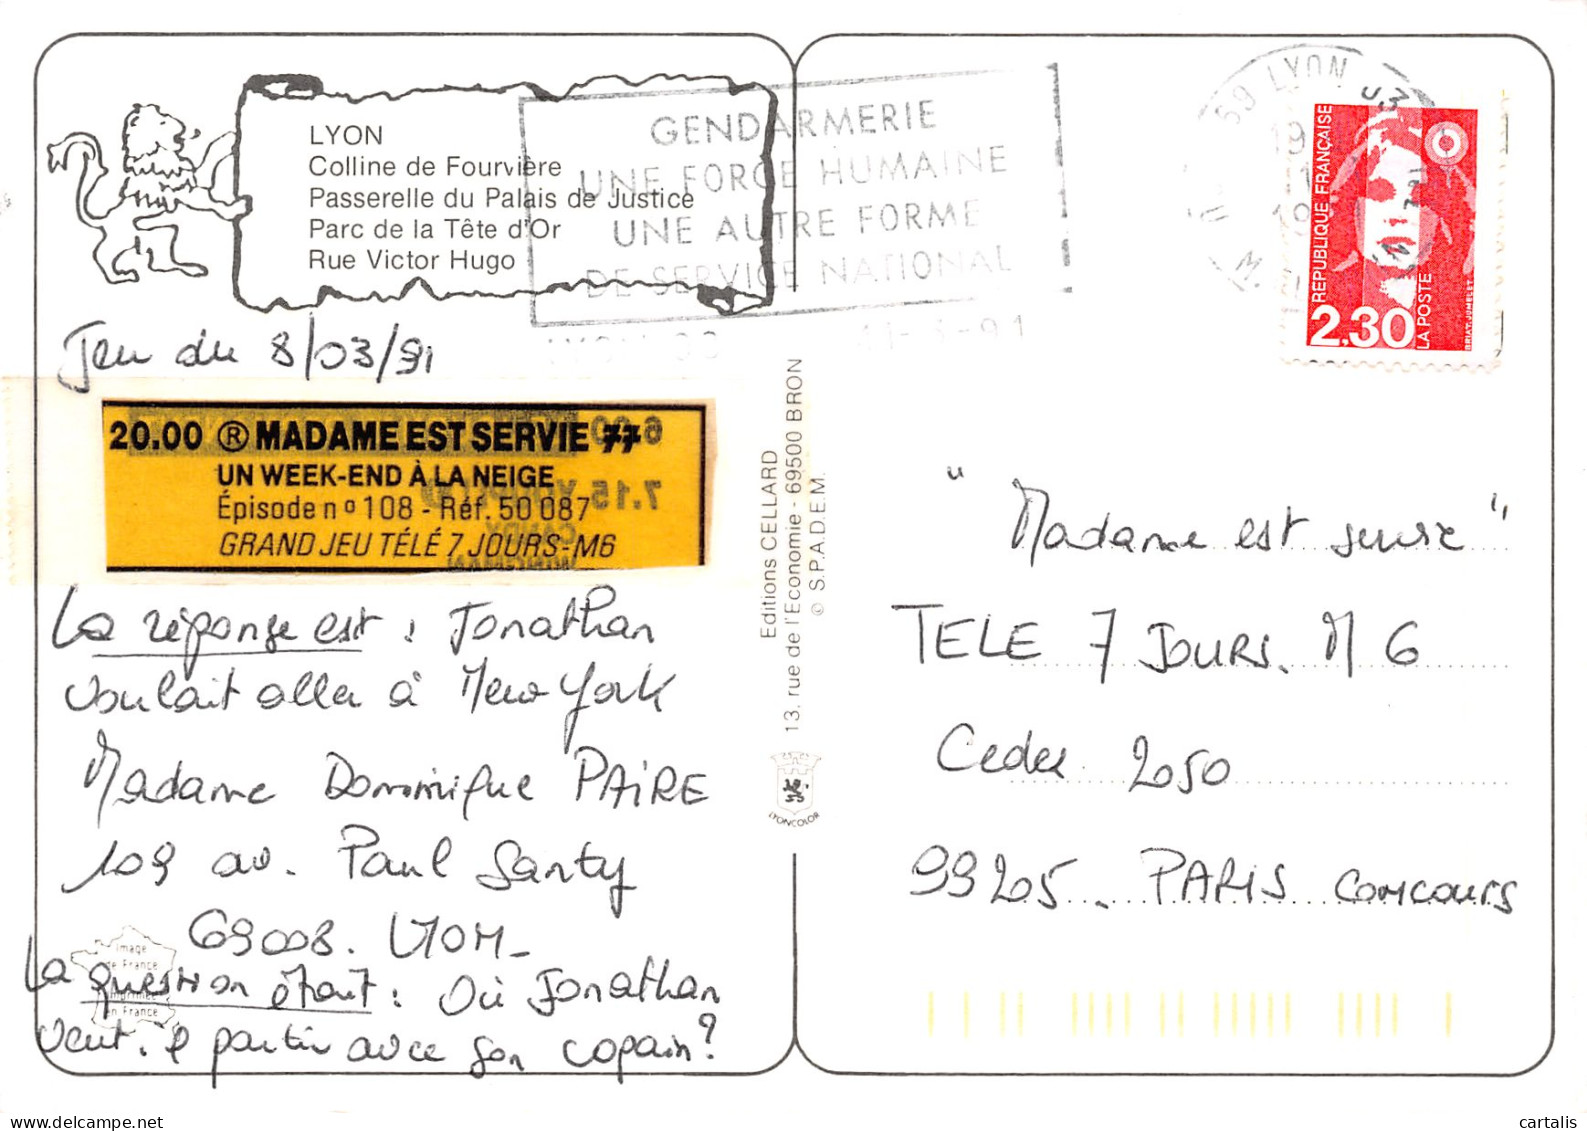 LYON
Colline de Fourvière
Passerelle du Palais de Justice
Parc de la Tête d'Or
Rue Victor Hugo
GENDARMERIE
UNE FORCE HUMAINE
UNE AUTRE FORME
DE SERVICE NATIONAL
69 LYON
RÉPUBLIQUE FRANÇAISE
2.30
LA POSTE
BRIAT. JUMELET
Jeu du 8/03/91
20.00 ® MADAME EST SERVIE 77
UN WEEK-END À LA NEIGE
Épisode nº 108 - Réf. 50 087
GRAND JEU TÉLÉ 7 JOURS-M6
La réponse est : Jonathan
voulait aller à New York
Madame Dominique PAIRE
109 av. Paul Santy
69008. LYON -
La question était : Où Jonathan
veut-il partir avec son copain ?
Image
de France
Imprimée
en France
Editions CELLARD
13, rue de l'Economie - 69500 BRON
© S.P.A.D.E.M.
LYONCOLOR
" Madame est servie "
TELE 7 JOURS. M 6
Cedex 2050
99205 - PARIS CONCOURS
cartalis